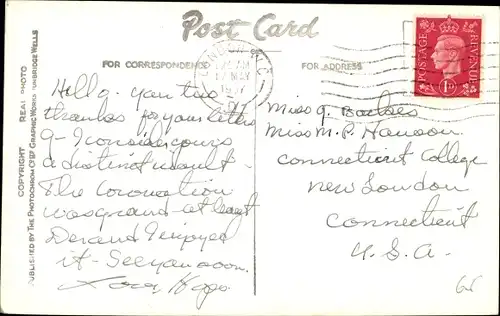 Post Card
FOR CORRESPONDENCE
FOR ADDRESS
COPYRIGHT REAL PHOTO
PUBLISHED BY THE PHOTOCHROM CO LTD GRAPHIC WORKS TUNBRIDGE WELLS
LONDON W.C.
17 MAY
1937
POSTAGE
REVENUE
1D
Hello - you two
thanks for your letters
I consider yours
a distinct insult -
The Coronation
was grand - at least
and I enjoyed
it - See you soon.
Love,
Miss J.
Miss M. P. Hanson
Connecticut College
New London
Connecticut
U.S.A.